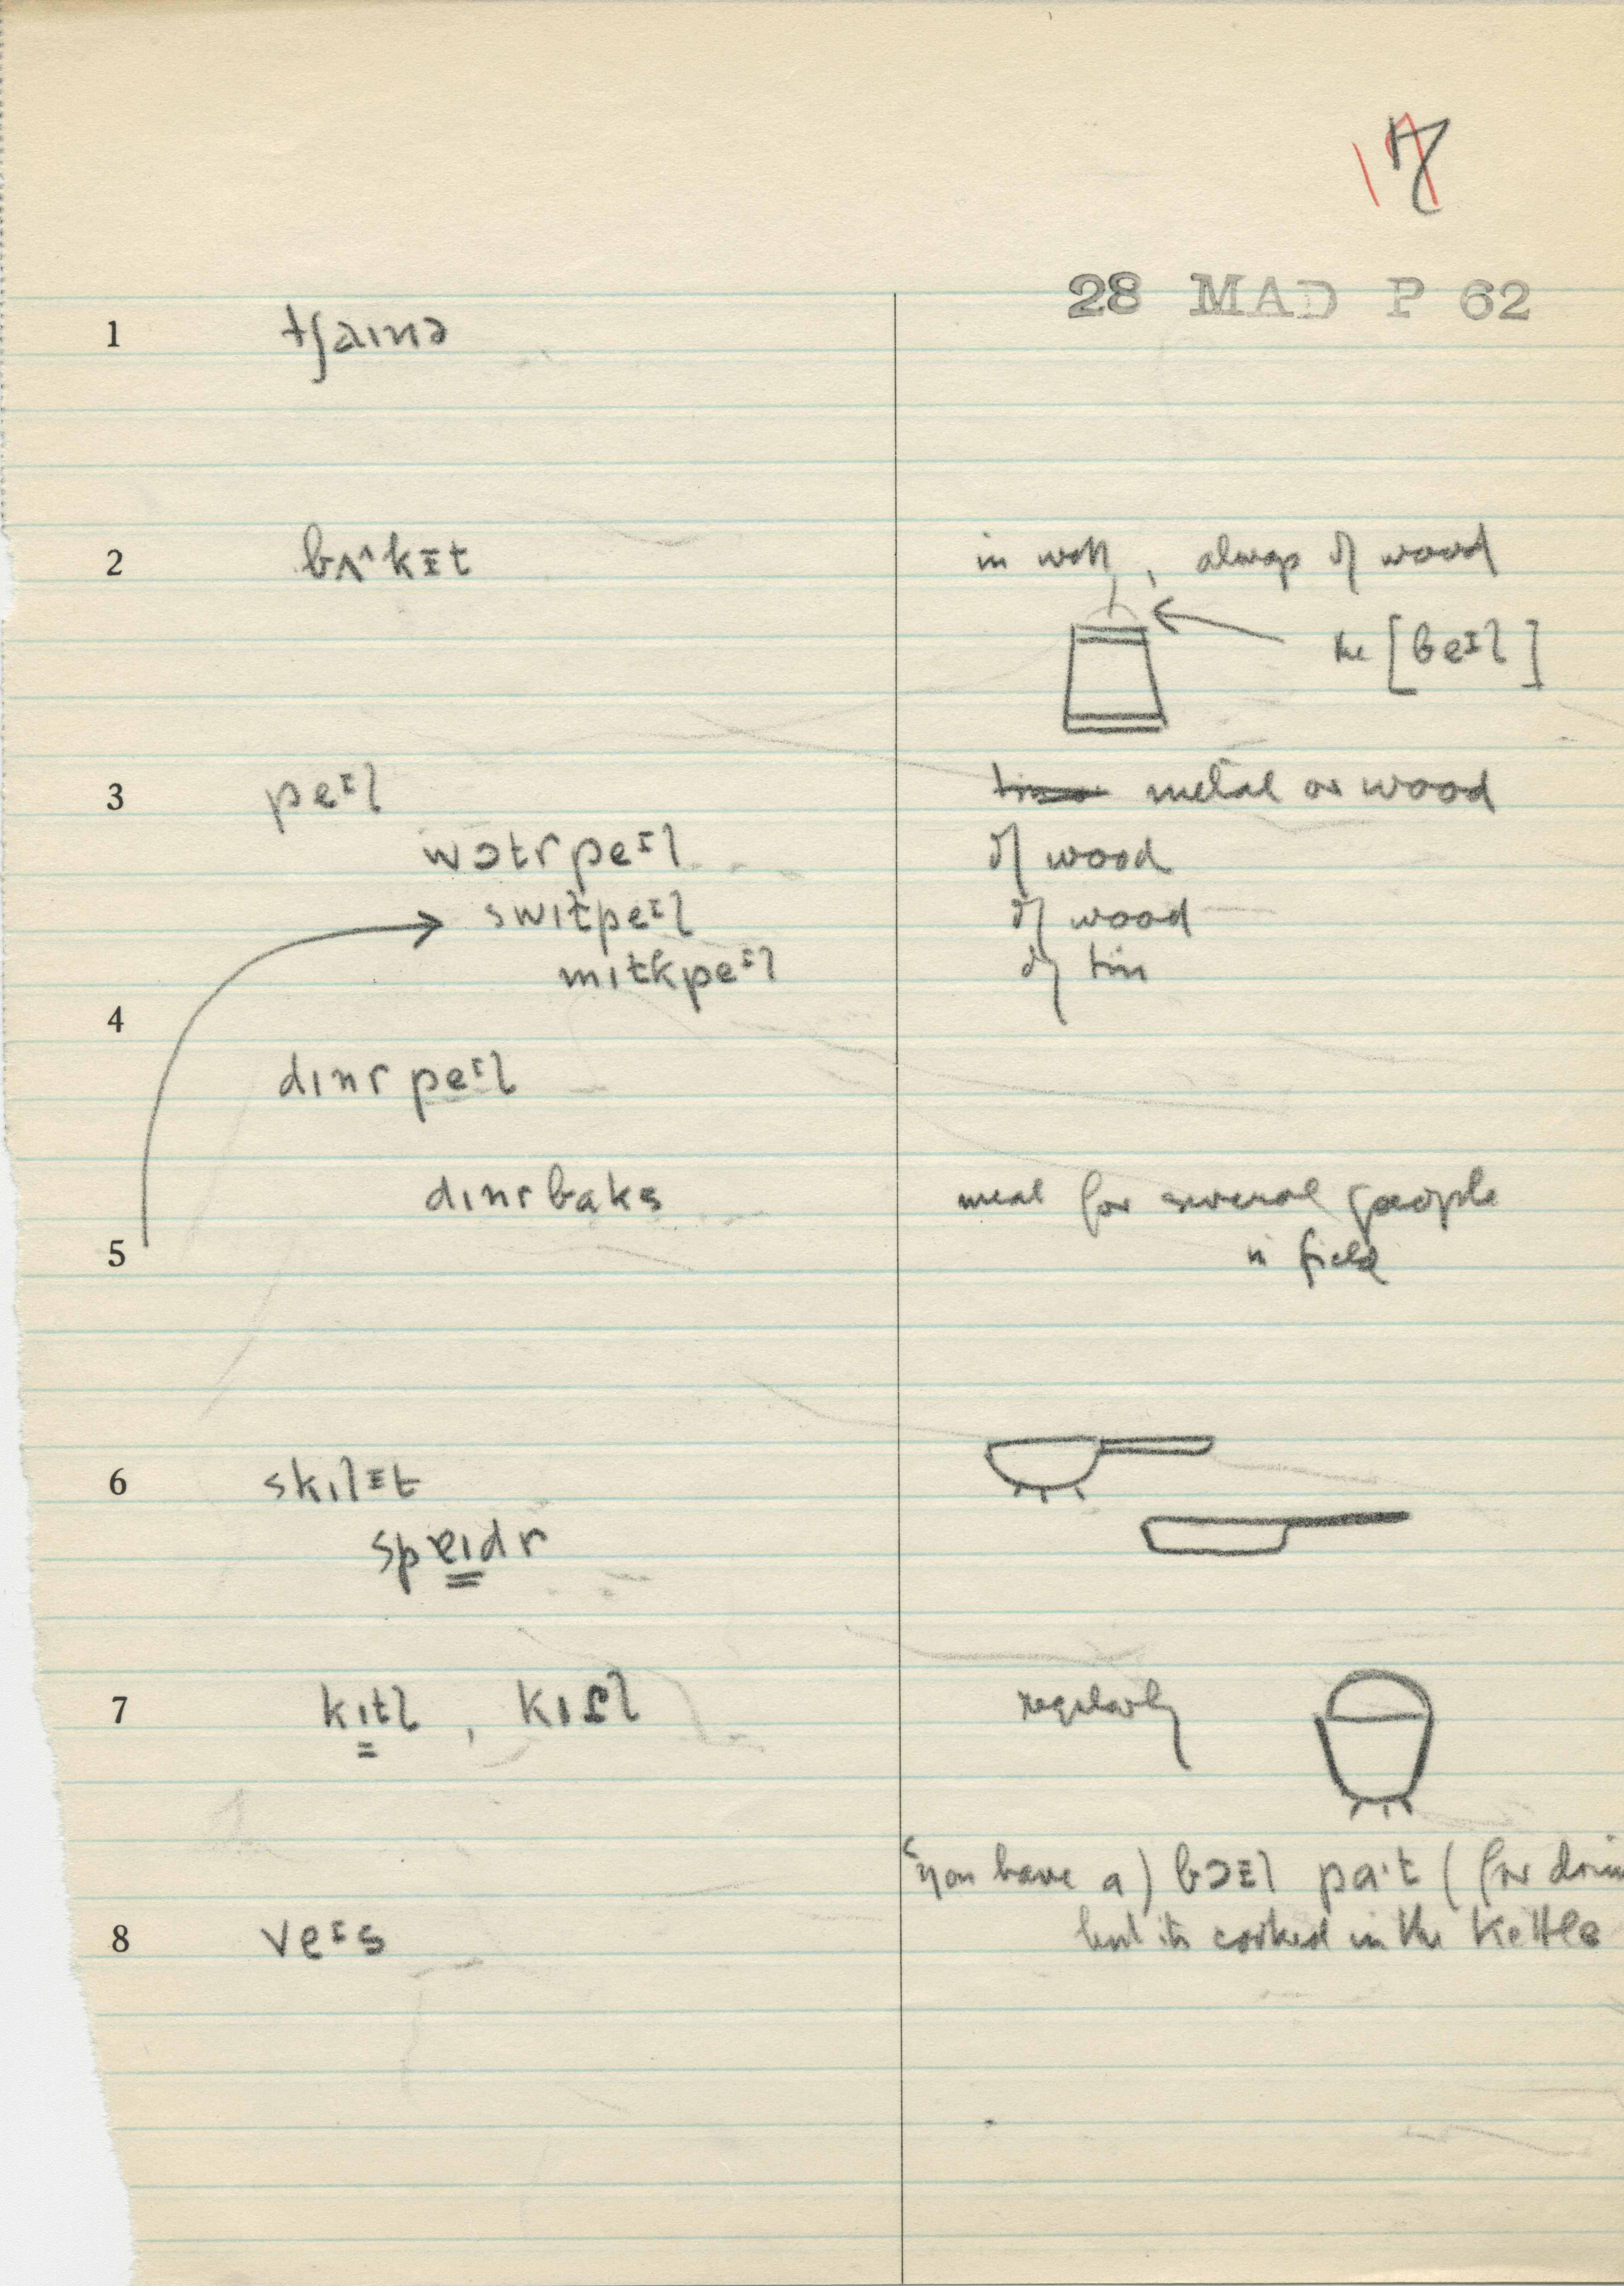 17
28 MAD P 62
1 tʃaɪnə
2 bʌ^kɪt in well, always of wood
the [beɪl]
3 peɪl metal or wood
wɔtr peɪl of wood
swɪtpeɪl of wood
mɪtkpeɪl of tin
4
dɪnr peɪl
dɪnr baks meal for several people
5 in field
6 skɪlɪt
spɐɪdr
7 kɪtl, kɪɾl regularly
(you have a) bɔɪl pa·t (for
8 veɪs but its cooked in the kettle